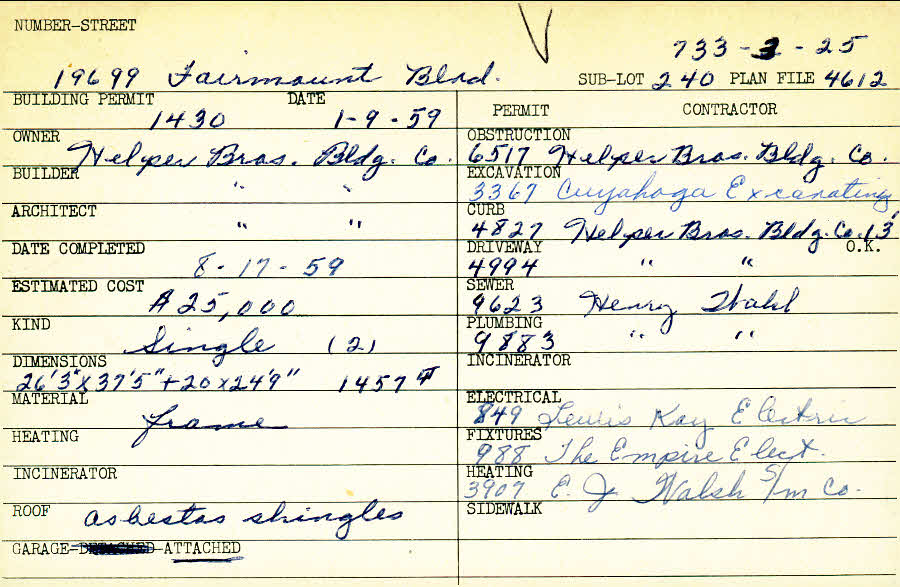 NUMBER-STREET
733-3-25
19699 Fairmount Blvd.
SUB-LOT 240 PLAN FILE 4612
BUILDING PERMIT DATE
1430 1-9-59
OWNER
Helper Bros. Bldg. Co.
BUILDER
" "
ARCHITECT
" "
DATE COMPLETED
8-17-59
ESTIMATED COST
$25,000
KIND
Single (2)
DIMENSIONS
26'3"x37'5"+20x24'9" 1457
MATERIAL
frame
HEATING
INCINERATOR
ROOF asbestos shingles
GARAGE-DETACHED-ATTACHED
PERMIT CONTRACTOR
OBSTRUCTION
6517 Helper Bros. Bldg. Co.
EXCAVATION
3367 Cuyahoga Excavating
CURB
4827 Helper Bros. Bldg. Co. 13'
DRIVEWAY O.K.
4994 " "
SEWER
9623 Henry Wahl
PLUMBING
9883 " "
INCINERATOR
ELECTRICAL
849 Lewis Kay Electric
FIXTURES
988 The Empire Elect.
HEATING
3907 E. J Walsh S/m Co.
SIDEWALK